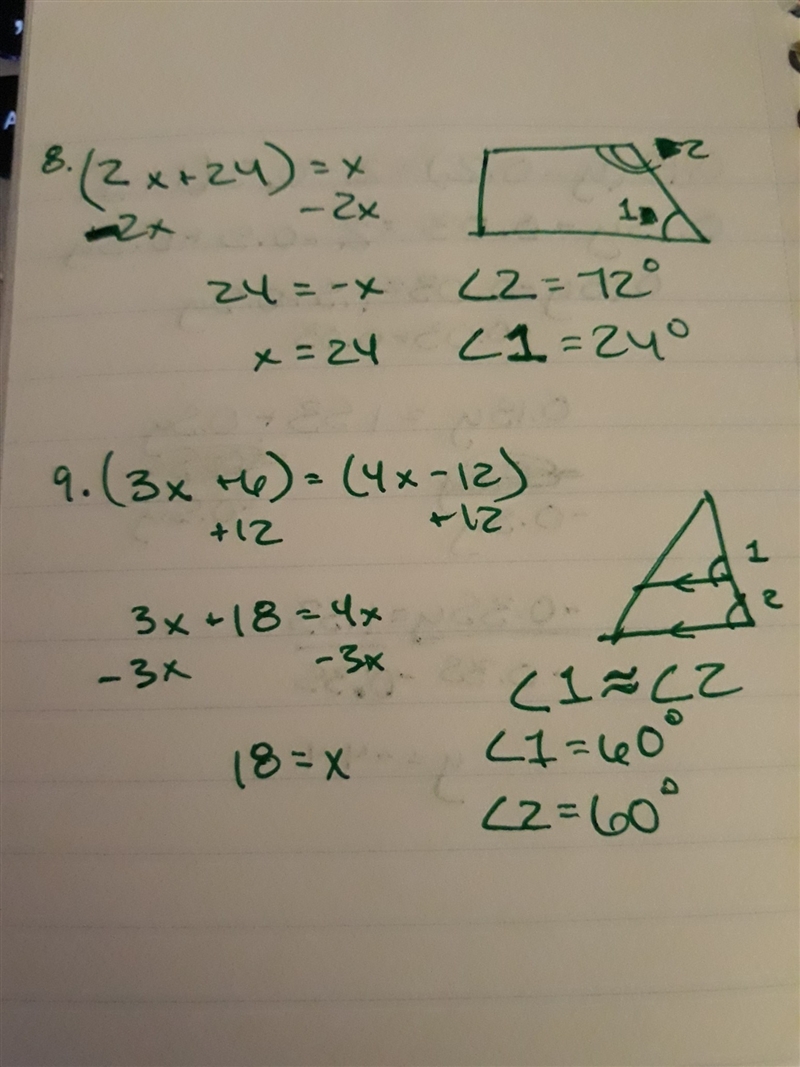 8. (2x+24) = x
-2x -2x
2
1
24 = -x
∠2 = 72°
x = 24
∠1 = 24°
9. (3x +6) = (4x - 12)
+12 +12
1
2
3x + 18 = 4x
-3x -3x
∠1 ≈ ∠2
18 = x
∠1 = 60°
∠2 = 60°